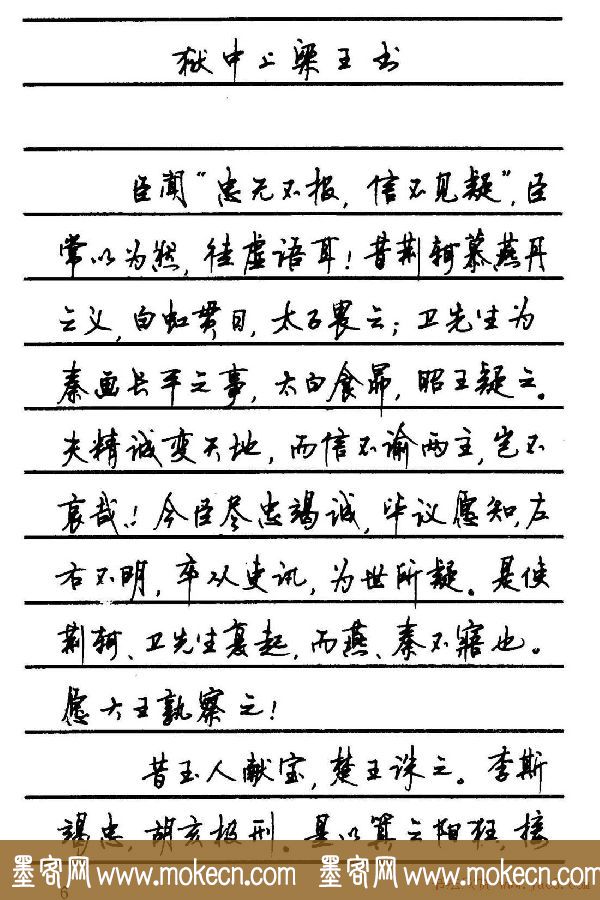 狱中上梁王书
臣闻“忠无不报，信不见疑”，臣
常以为然，徒虚语耳！昔荆轲慕燕丹
之义，白虹贯日，太子畏之；卫先生为
秦画长平之事，太白食昴，昭王疑之。
夫精诚变天地，而信不谕两主，岂不
哀哉！今臣尽忠竭诚，毕议愿知，左
右不明，卒从吏讯，为世所疑。是使
荆轲、卫先生复起，而燕、秦不寤也。
愿大王孰察之！
昔玉人献宝，楚王诛之。李斯
竭忠，胡亥极刑。是以箕子阳狂，接
墨客网 www.mokecn.com 墨客网 www.mokecn.com
6